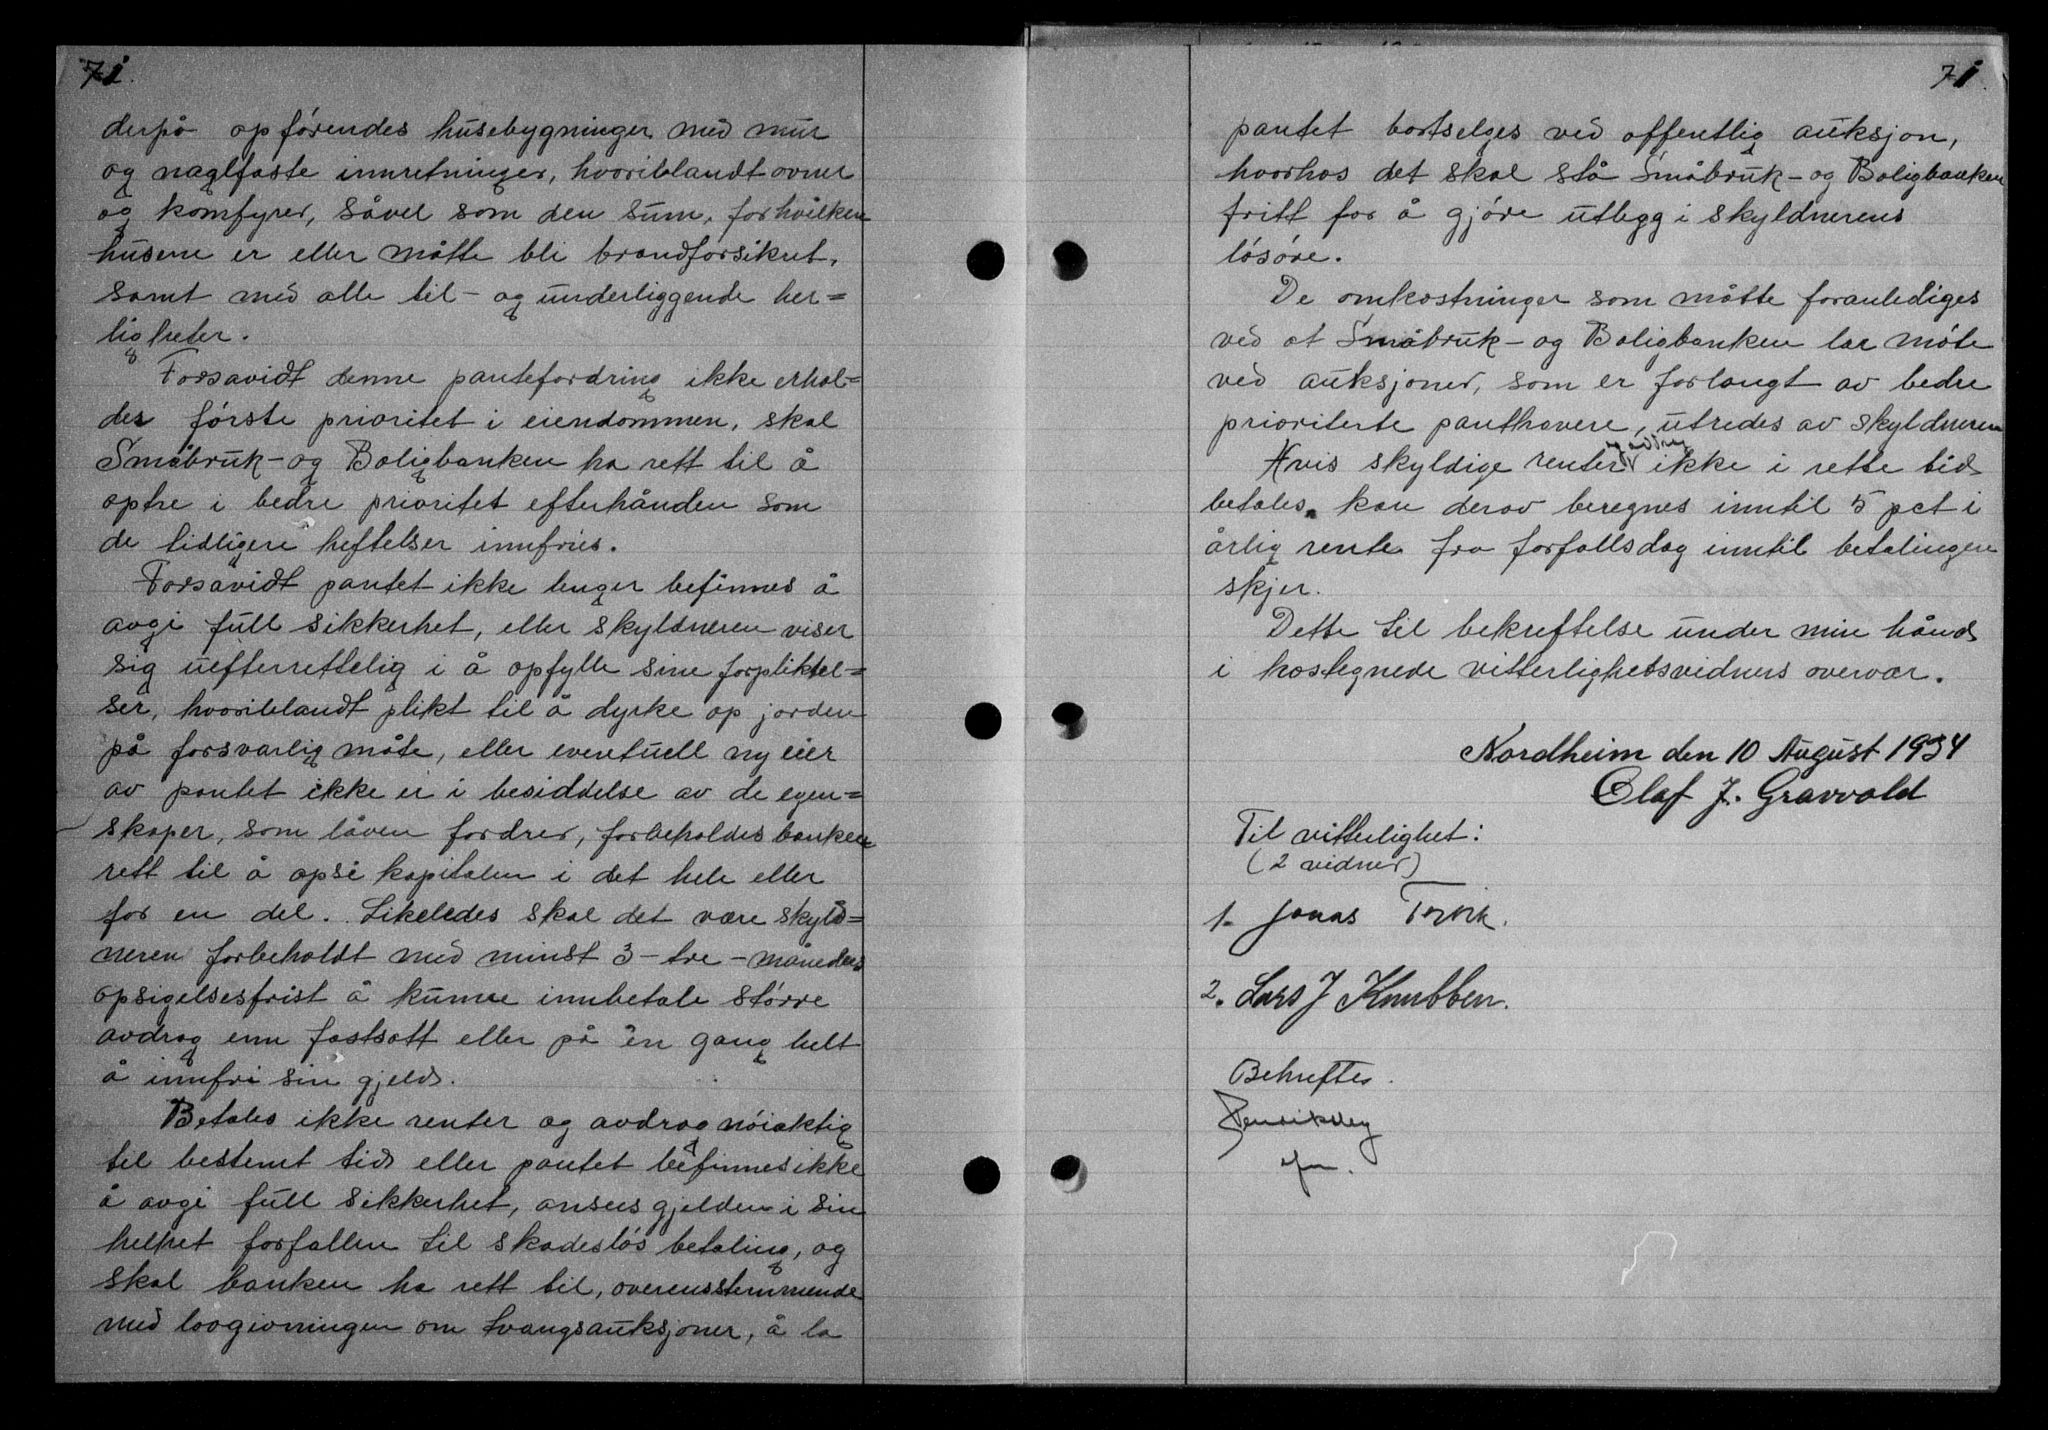 71.
derpå opförendes husebygninger med mur
og naglfaste innretninger, hvoriblandt ovner
og komfyrer, såvel som den sum, for hvilken
husene er eller måtte bli brandforsikret,
samt med alle til- og underliggende her=
ligheter.
Forsavidt denne pantefordring ikke erhol=
des första prioritet i eiendommen, skal
Småbruk- og Boligbanken ha rett til å
optre i bedre prioritet efterhånden som
de tidligere heftelser innfries.
Forsavidt pantet ikke lenger befinnes å
avgi full sikkerhet, eller skyldneren viser
sig uefterrettelig i å opfylle sine forpliktel=
ser, hvoriblandt plikt til å dyrke op jorden
på forsvarlig måte, eller eventuell ny eier
av pantet ikke er i besiddelse av de egen=
skaper, som låven fordrer, forbeholdes banken
rett til å opsi kapitalen i det hele eller
for en del. Likeledes skal det være skyld=
neren forbeholdt med minst 3 - tre - måneders
opsigelsesfrist å kunne innbetale större
avdrag enn fastsatt eller på én gang helt
å innfri sin gjeld.
Betales ikke renter og avdrag nöiaktig
til bestemt tid eller pantet befinnes ikke
å avgi full sikkerhet, anses gjelden i sin
helhet forfallen til skadeslös betaling, og
skal banken ha rett til, overensstemmende
med lovgivningen om tvangsauksjoner, å la
71.
pantet bortselges ved offentlig auksjon,
hvorhos det skal stå Småbruk- og Boligbanken
fritt for å gjöre utlegg i skyldnerens
lösöre.
De omkostninger som måtte foranlediges
ved at Småbruk- og Boligbanken lar möte
ved auksjoner, som er forlangt av bedre
prioriterte panthavere, utredes av skyldneren
Hvis skyldige renter ikke i rette tid
betales, kan derav beregnes inntil 5 pct i
årlig rente fra forfallsdag inntil betalingen
skjer.
Dette til bekreftelse under min hånd
i hostegnede vitterlighetsvidners overvær.
Nordheim den 10 August 1934
Olaf J. Gravvold
Til vitterlighet:
(2 vidner)
1. Jonas
2. Lars J Knubben.
Bekreftes.